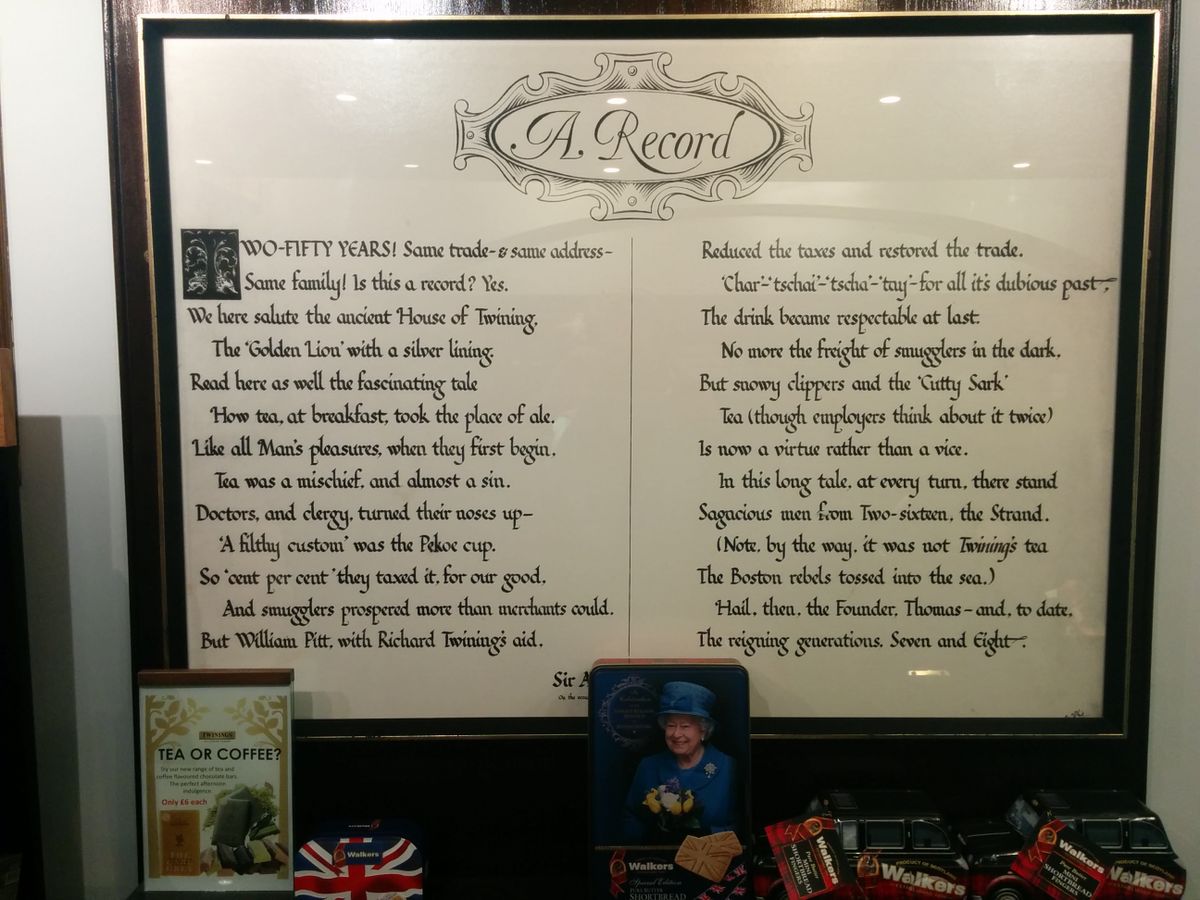 A. Record
TWO-FIFTY YEARS! Same trade-& same address-
Same family! Is this a record? Yes.
We here salute the ancient House of Twining,
The 'Golden Lion' with a silver lining.
Read here as well the fascinating tale
How tea, at breakfast, took the place of ale.
Like all Man's pleasures, when they first begin,
Tea was a mischief, and almost a sin.
Doctors, and clergy, turned their noses up-
'A filthy custom' was the Pekoe cup.
So 'cent per cent' they taxed it, for our good,
And smugglers prospered more than merchants could.
But William Pitt, with Richard Twining's aid,
Reduced the taxes and restored the trade.
'Char'-'tschai'-'tscha'-'tay'-for all it's dubious past,
The drink became respectable at last.
No more the freight of smugglers in the dark,
But snowy clippers and the 'Cutty Sark'
Tea (though employers think about it twice)
Is now a virtue rather than a vice.
In this long tale, at every turn, there stand
Sagacious men from Two-sixteen, the Strand.
(Note, by the way, it was not Twining's tea
The Boston rebels tossed into the sea.)
Hail, then, the Founder, Thomas-and, to date,
The reigning generations, Seven and Eight.
Sir A
On the
TWININGS
TEA OR COFFEE?
Try our new range of tea and
coffee flavoured chocolate bars.
The perfect afternoon
indulgence.
Only £6 each
Walkers
Walkers
Special Edition
PURE BUTTER
SHORTBREAD
Walkers
Pure Butter
MINI
SHORTBREAD
FINGERS
PRODUCT OF SCOTLAND
Walkers
Walkers
Pure Butter
MINI
SHORTBREAD
FINGERS
PRODUCT OF SCOTLAND
Walkers